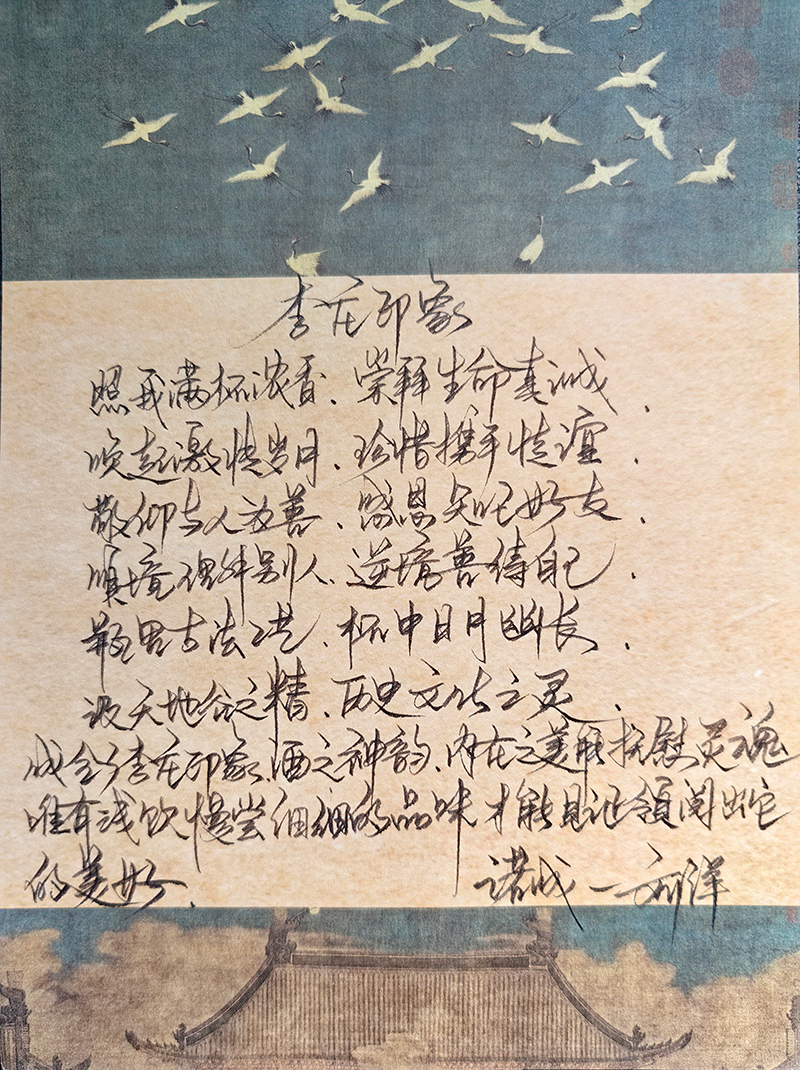 李庄印象
照我满杯浓香、崇拜生命真诚、
唤起激情岁月、珍惜携手情谊、
敬仰与人为善、感恩知己好友、
顺境 别人、逆境善待自己、
古法 、杯中日月幽长、
汲天地谷之精、历史文化之灵、
成全了李庄印象、酒之神韵、内在之美能抚慰灵魂
唯有浅饮慢尝细细的品味才能见证领阅出它
的美好、 诺成一 刘洋